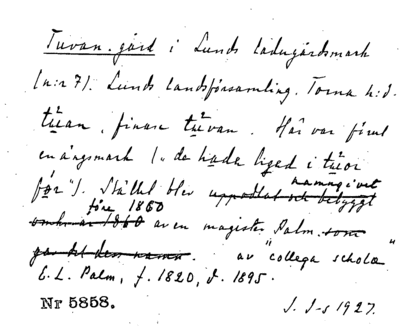 Tuvan. gård i Lunds ladugårdsmark
(n:r 7). Lunds landsförsamling. Torna h:d.
tūan, finare tūvan. Här var förut
en ängsmark (" da hade liged i tūor
før"). Stället blev uppodlat och bebyggt namngivet
omkr. år 1860 före 1860 av en magister Palm. som
gav det dess namn. av "collega scholæ"
E. L. Palm, f. 1820, d. 1895.
Nr 5858. J. J-s 1927.